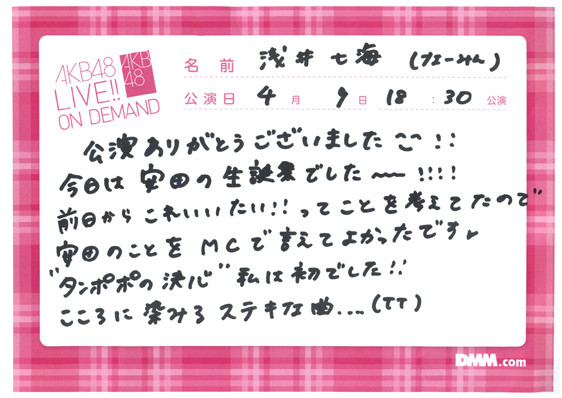 AKB48
LIVE!!
ON DEMAND
AKB
48
名前 浅井七海 (なーみん)
公演日 4月 9日 18:30 公演
公演ありがとうございました〜!!
今日は安田の生誕祭でした〜!!!!
前日からこれいいたい!!ってことを考えてたので
安田のことをMCで言えてよかったです
"タンポポの決心" 私は初でした!!
こころに染みるステキな曲....(TT)
DMM.com